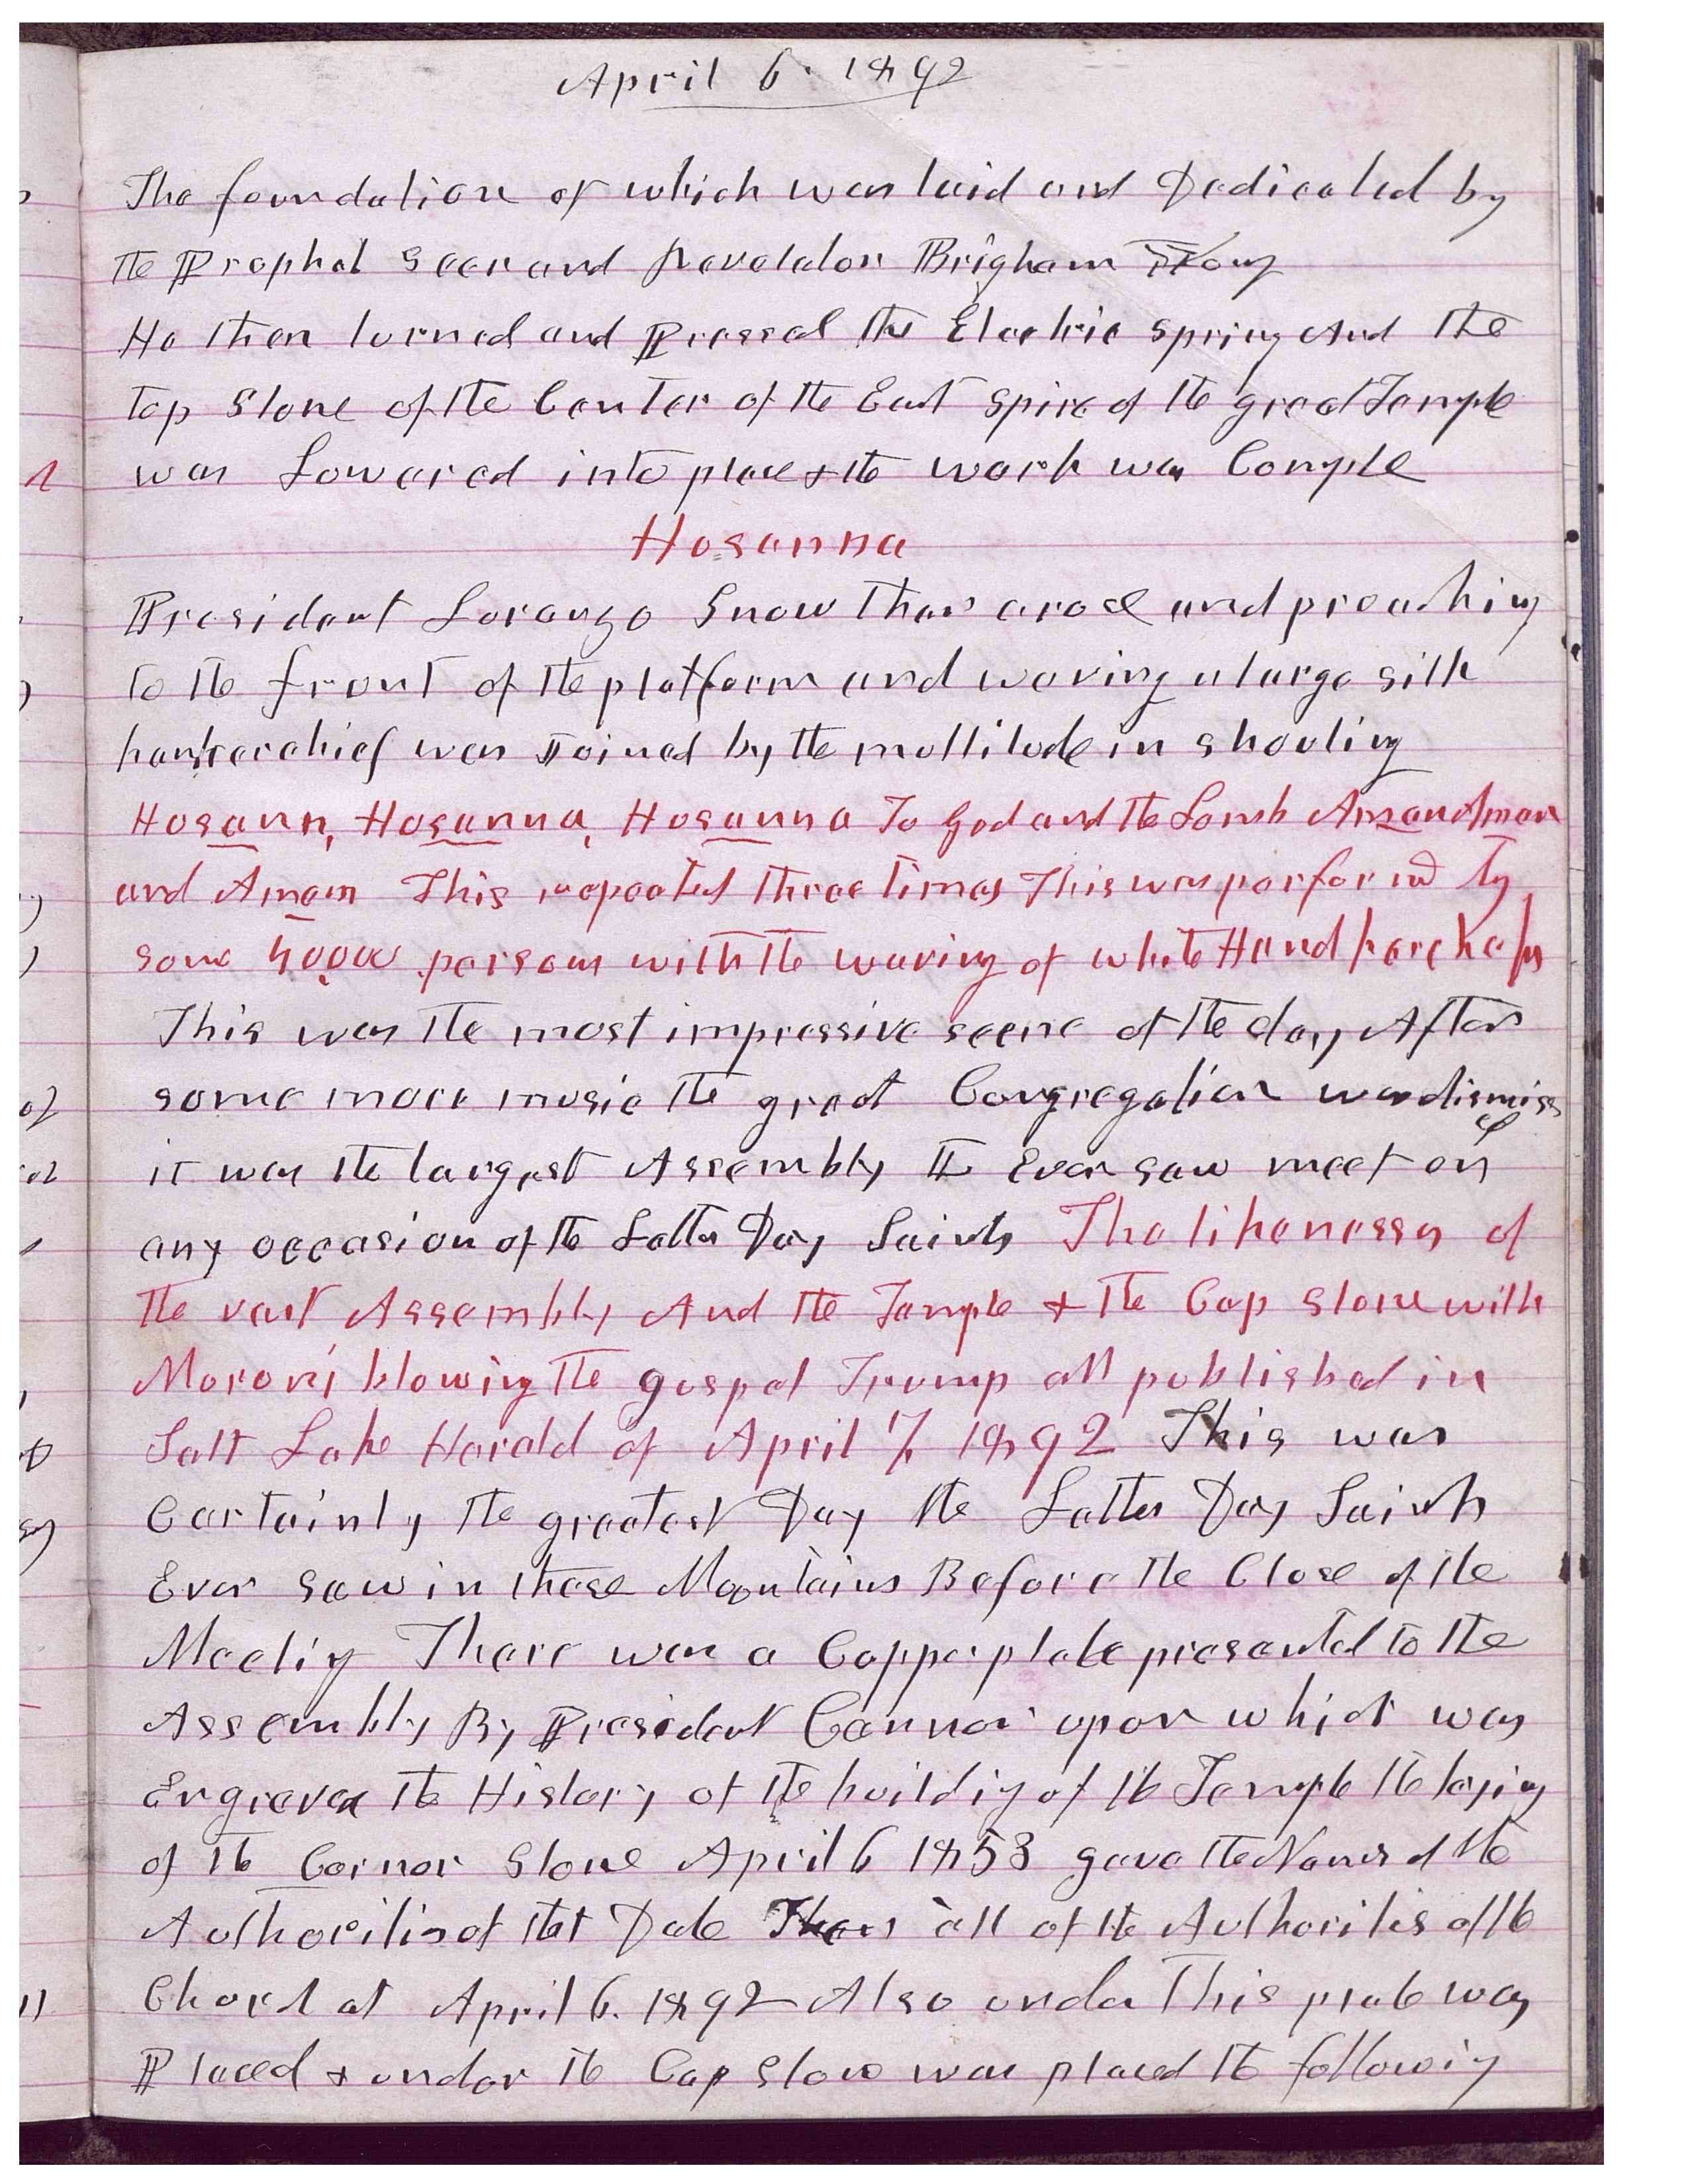 April 6. 1892
The foundation of which was laid and Dedicated by
the Prophet Seer and Revelator Brigham Young
He then turned and Pressed the Electric spring And the
top Stone of the Center of the East spire of the great Temple
was Lowered into place & the work was Comple
Hosanna
President Loranzo Snow then arose and preaching
to the front of the platform and waving a large silk
hankerchief was Joined by the multitude in shouting
Hosann, Hosanna, Hosanna To God and the Lamb Amen Amen
and Amen This repeated three times This was performd by
some 50,000 persons with the waving of white Handkerchefs
This was the most impressive scene of the day After
some more music the great Congregation was dismissed
it was the largest Assembly I Ever saw meet on
any occasion of the Latter Day Saints The likenesses of
the vast Assembly And the Temple & the Cap stone with
Moroni blowing the gospel Trump all published in
Salt Lake Herald of April 7, 1892 This was
Certainly the greatest Day the Latter Day Saints
Ever saw in these Mountains Before the Close of the
Meeting There was a Copper plate presented to the
Assembly By President Cannon upon which was
Engraved the History of the building of the Temple the laying
of the Corner Stone April 6 1853 gave the Names of the
Authorities of that Date Then all of the Authorities of the
Church at April 6. 1892 Also under This plate was
Placed & under the Cap Stone was placed the following